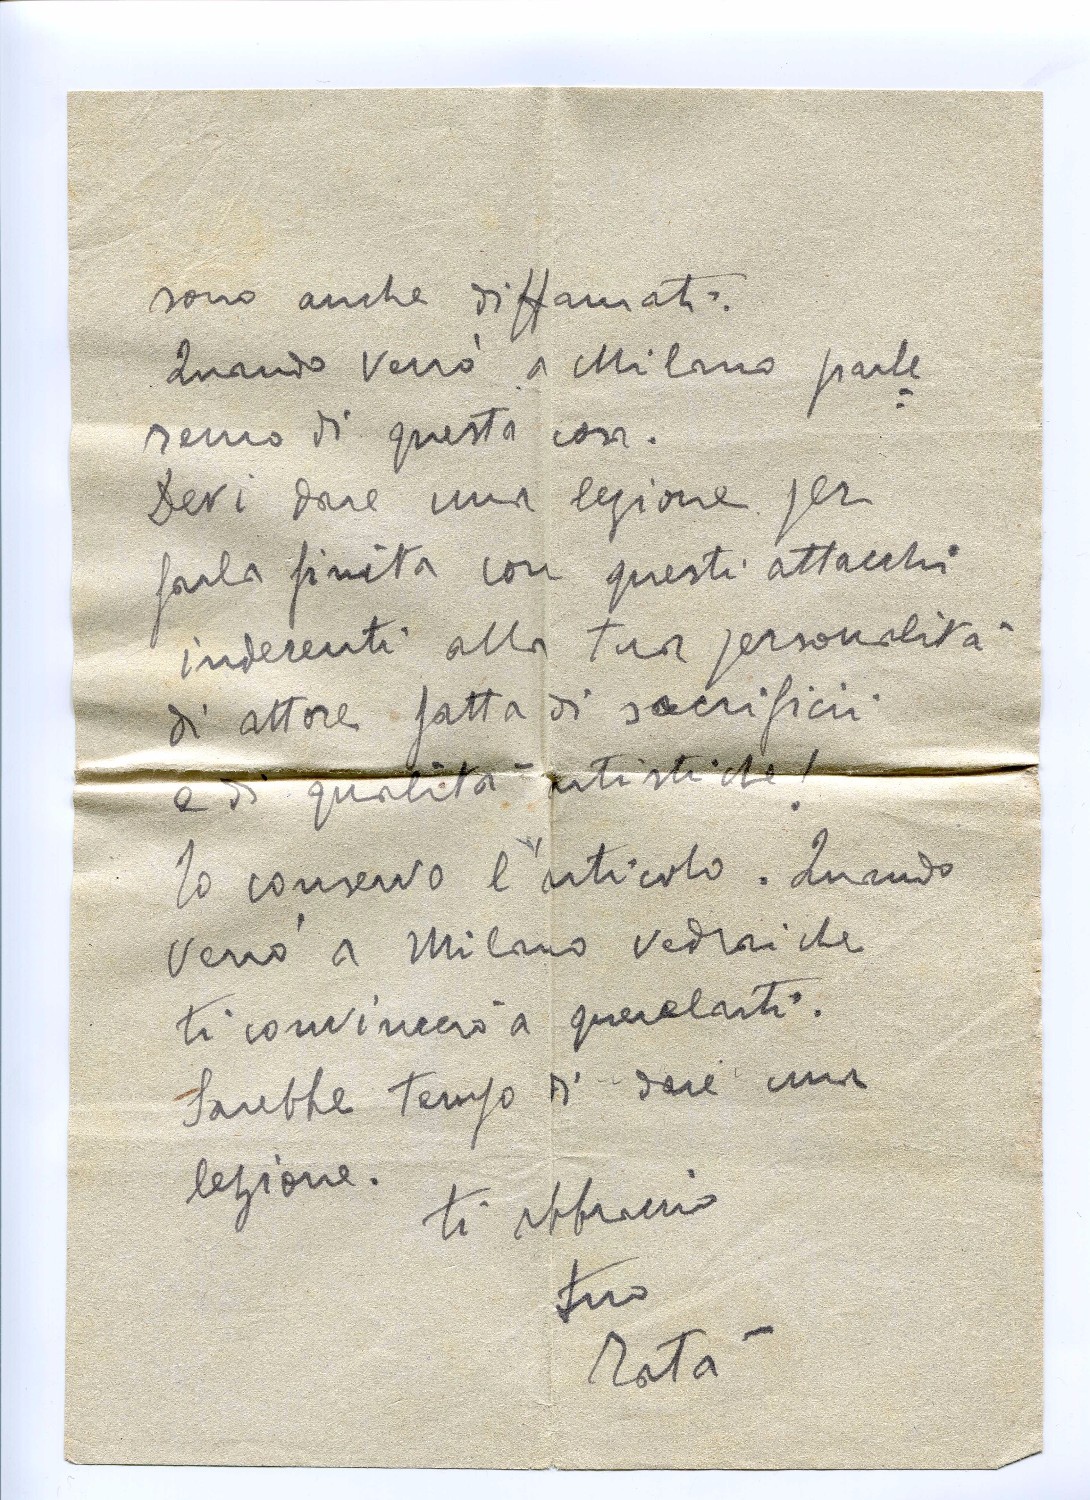 sono anche diffamati.
Quando verrò a Milano parle=
remo di questa cosa.
Devi dare una lezione per
farla finita con questi attacchi
inderenti alla tua personalità
di attore fatta di sacrificii
e di qualità artistiche!
Io conservo l'articolo. Quando
verrò a Milano vedrai che
ti convincerò a querelarti.
Sarebbe tempo di dare una
lezione.
ti abbraccio
tuo